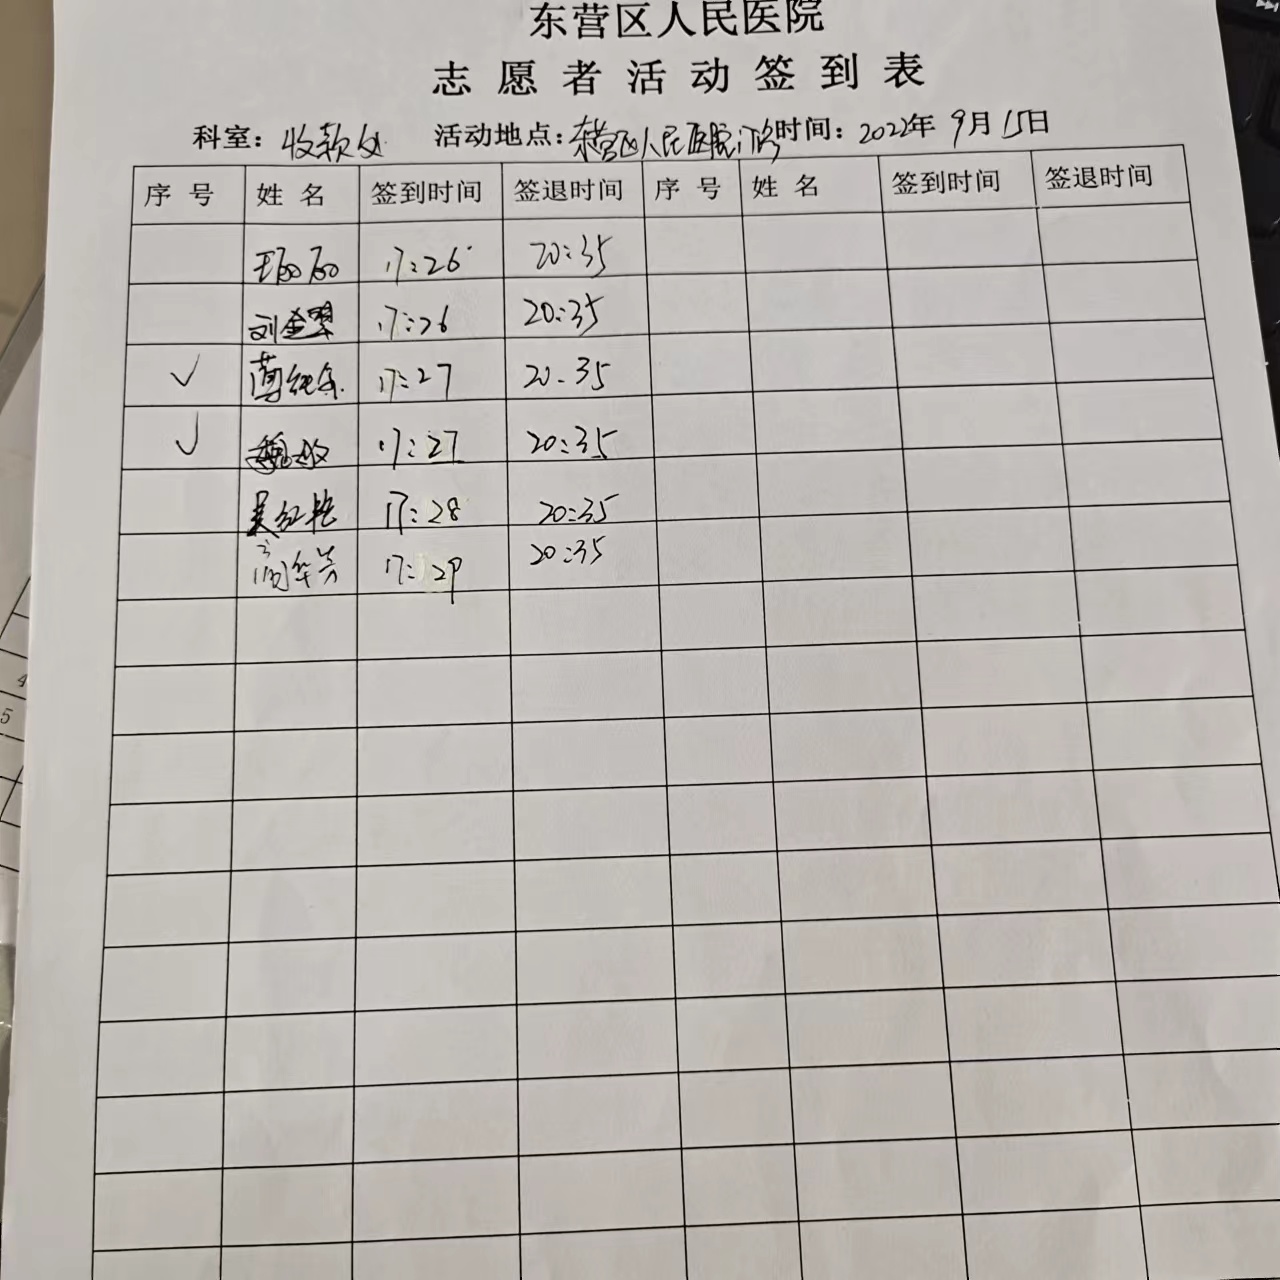 东营区人民医院
志愿者活动签到表
科室：收款处 活动地点：东营区人民医院门诊 时间：2022年9月15日
序号 姓名 签到时间 签退时间 序号 姓名 签到时间 签退时间
17:26 20:35
17:26 20:35
√ 17:27 20.35
√ 魏敏 17:27 20:35
吴红艳 17:28 20:35
17:29 20:35
4
5